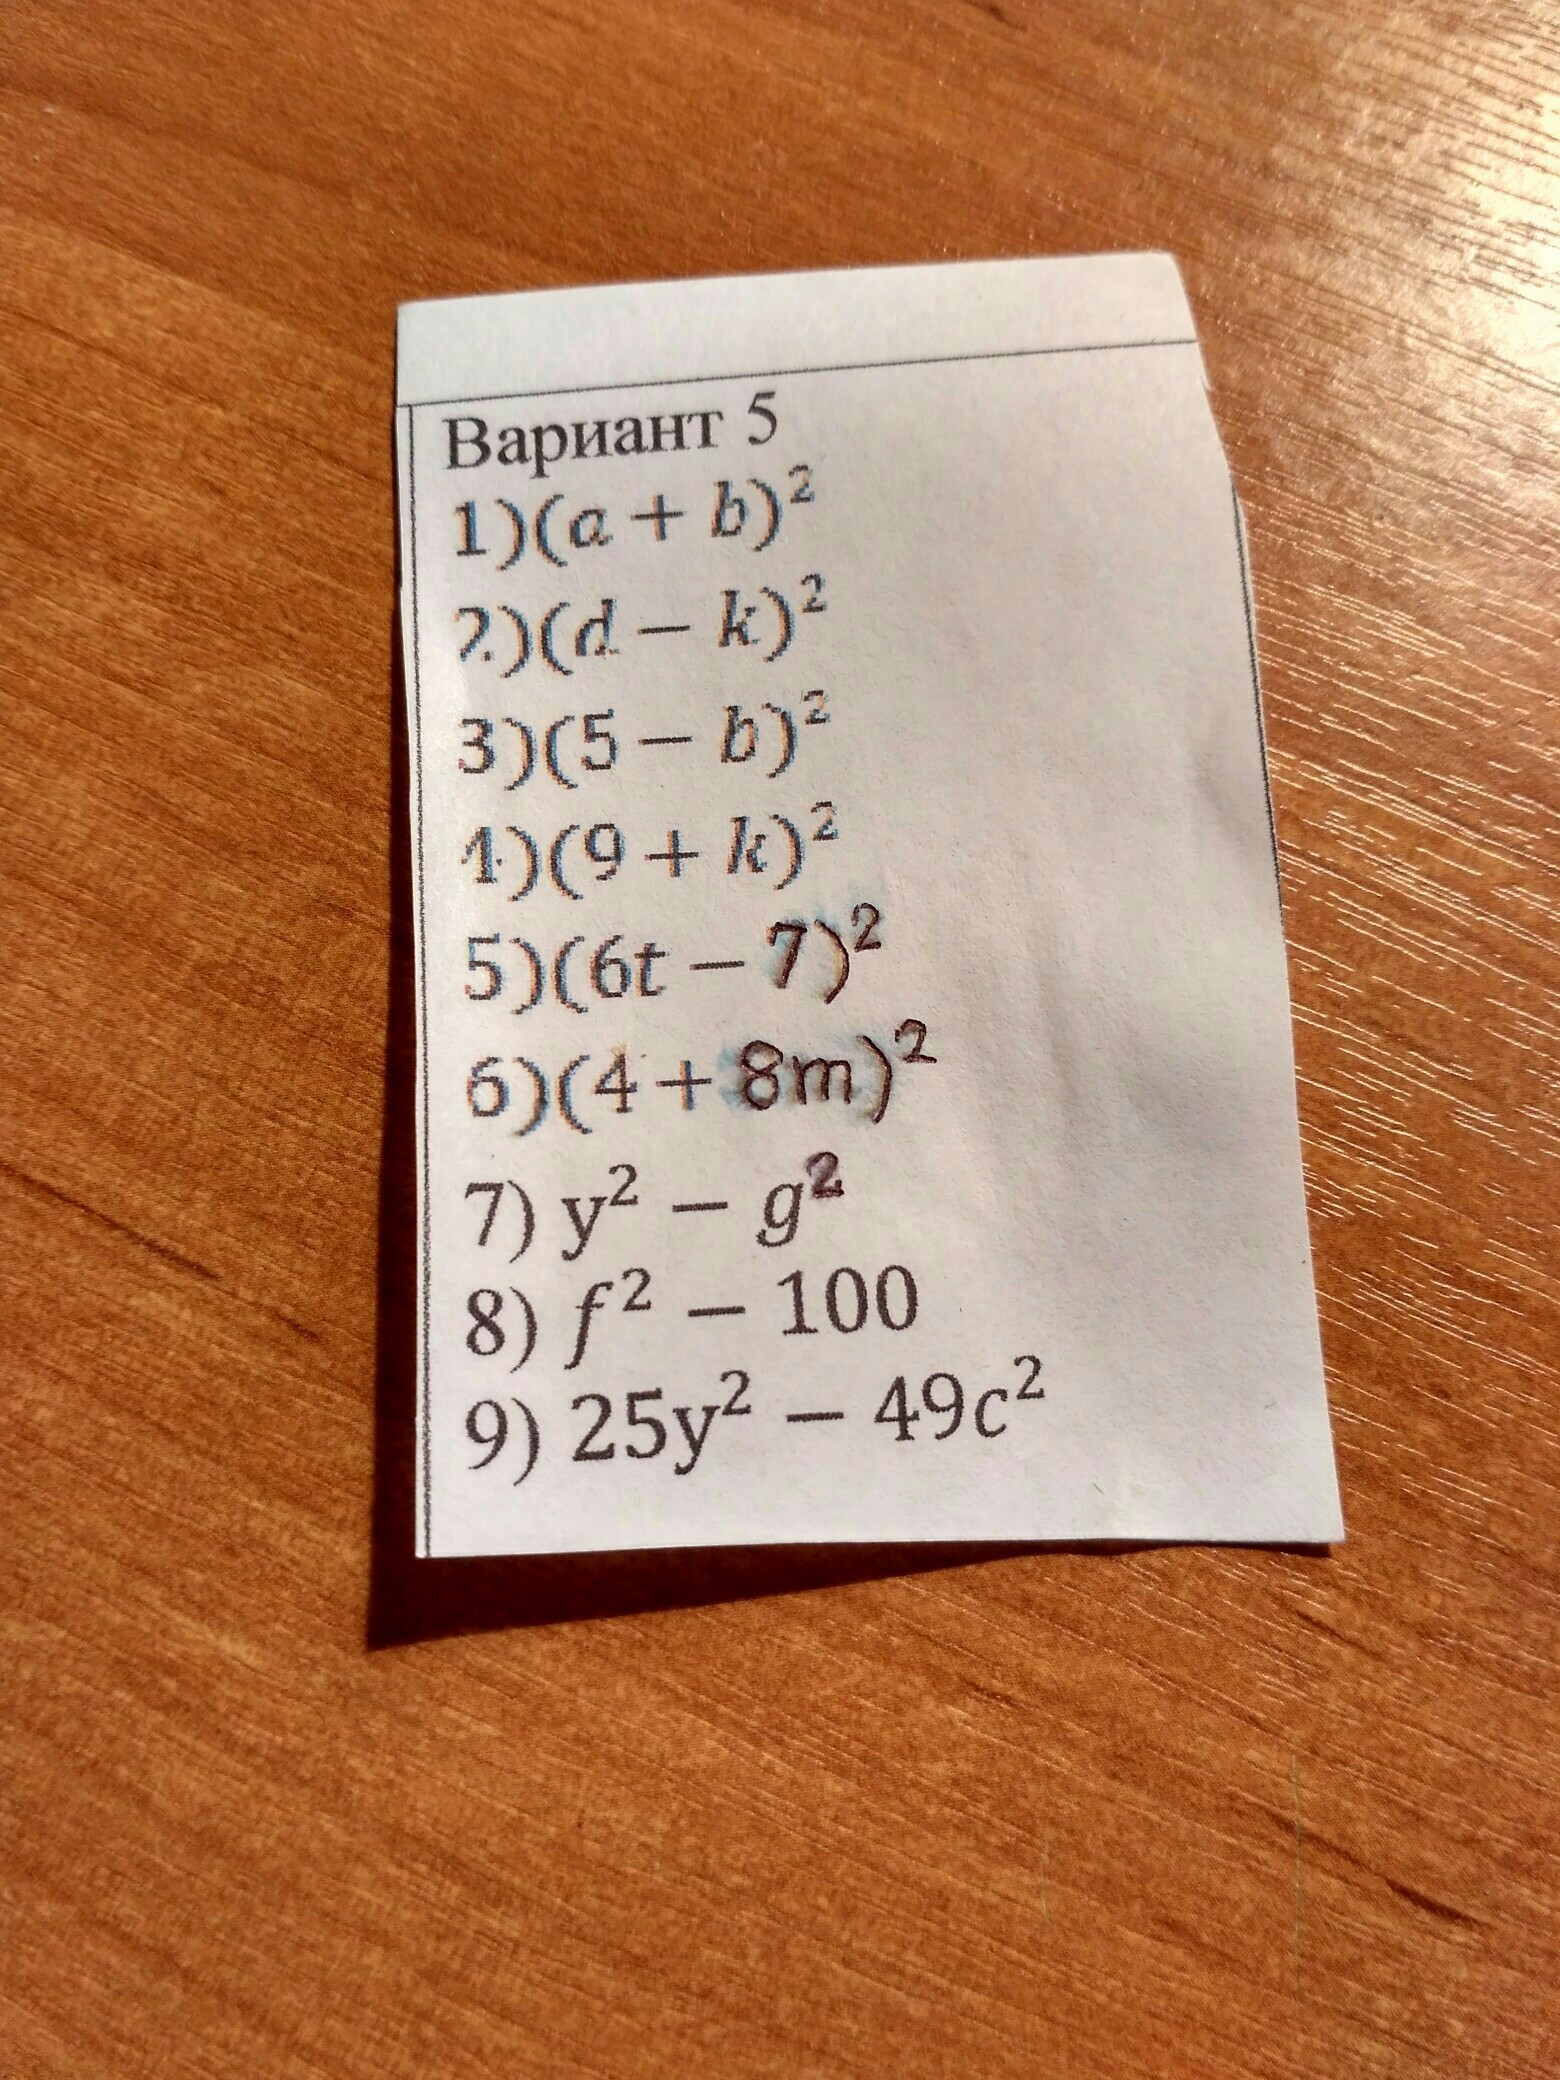 Вариант 5
1)(a + b)²
2)(d − k)²
3)(5 − b)²
4)(9 + k)²
5)(6t − 7)²
6)(4 + 8m)²
7) y² − g²
8) f² − 100
9) 25y² − 49c²